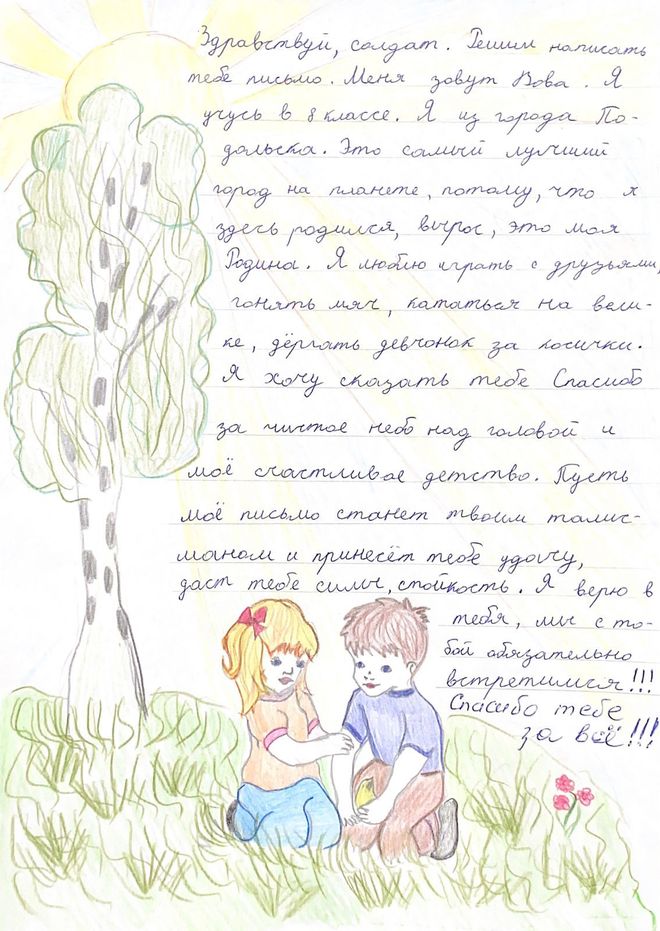 Здравствуй, солдат. Решил написать
тебе письмо. Меня зовут Вова. Я
учусь в 8 классе. Я из города По-
дольска. Это самый лучший
город на планете, потому, что я
здесь родился, вырос, это моя
Родина. Я люблю играть с друзьями,
гонять мяч, кататься на вели-
ке, дёргать девчонок за косички.
Я хочу сказать тебе Спасибо
за чистое небо над головой и
моё счастливое детство. Пусть
моё письмо станет твоим талис-
маном и принесёт тебе удачу,
даст тебе силы, стойкость. Я верю в
тебя, мы с то-
бой обязательно
встретимся!!!
Спасибо тебе
за всё!!!